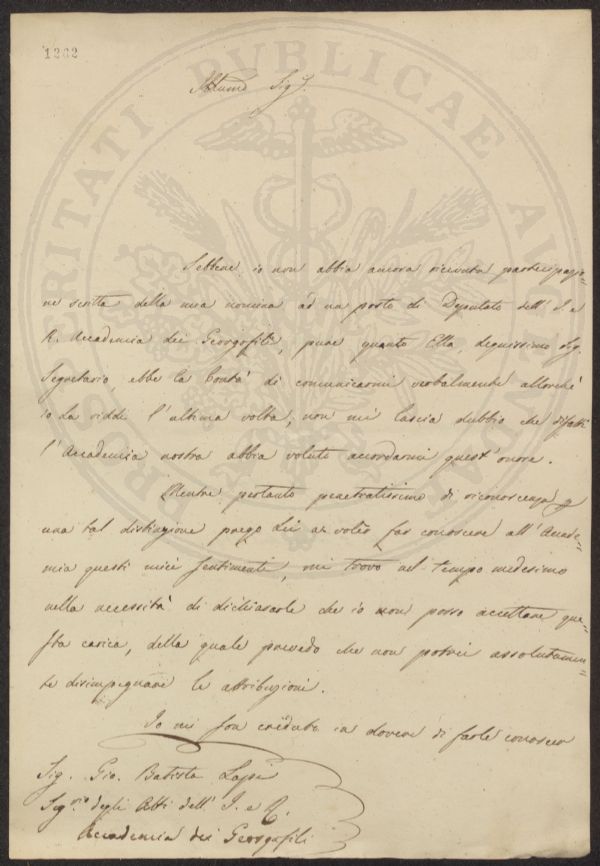 1262
Illmo Sig.
Sebbene io non abbia ancora ricevuta partecipazio=
ne scritta della mia nomina ad un posto di Deputato dell' I. e
R. Accademia dei Georgofili, pure quanto Ella, degnissimo Sig.
Segretario, ebbe la bontà di comunicarmi verbalmente allorchè
io La viddi l'ultima volta, non mi lascia dubbio che difatti
l'Accademia nostra abbia voluto accordarmi quest'onore.
Mentre pertanto penetratissimo di riconoscenza p
una tal distinzione prego Lei a voler far conoscere all'Acade=
mia questi miei sentimenti, mi trovo nel tempo medesimo
nella necessità di dichiararle che io non posso accettare que=
sta carica, della quale prevedo che non potrei assolutamen=
te disimpegnare le attribuzioni.
Io mi son creduto in dovere di farle conoscere
Sig. Gio. Batista Lapi
Segrio degli Atti dell' I. e R.
Accademia dei Georgofili
PROSPERITATI PUBLICAE AUGENDAE